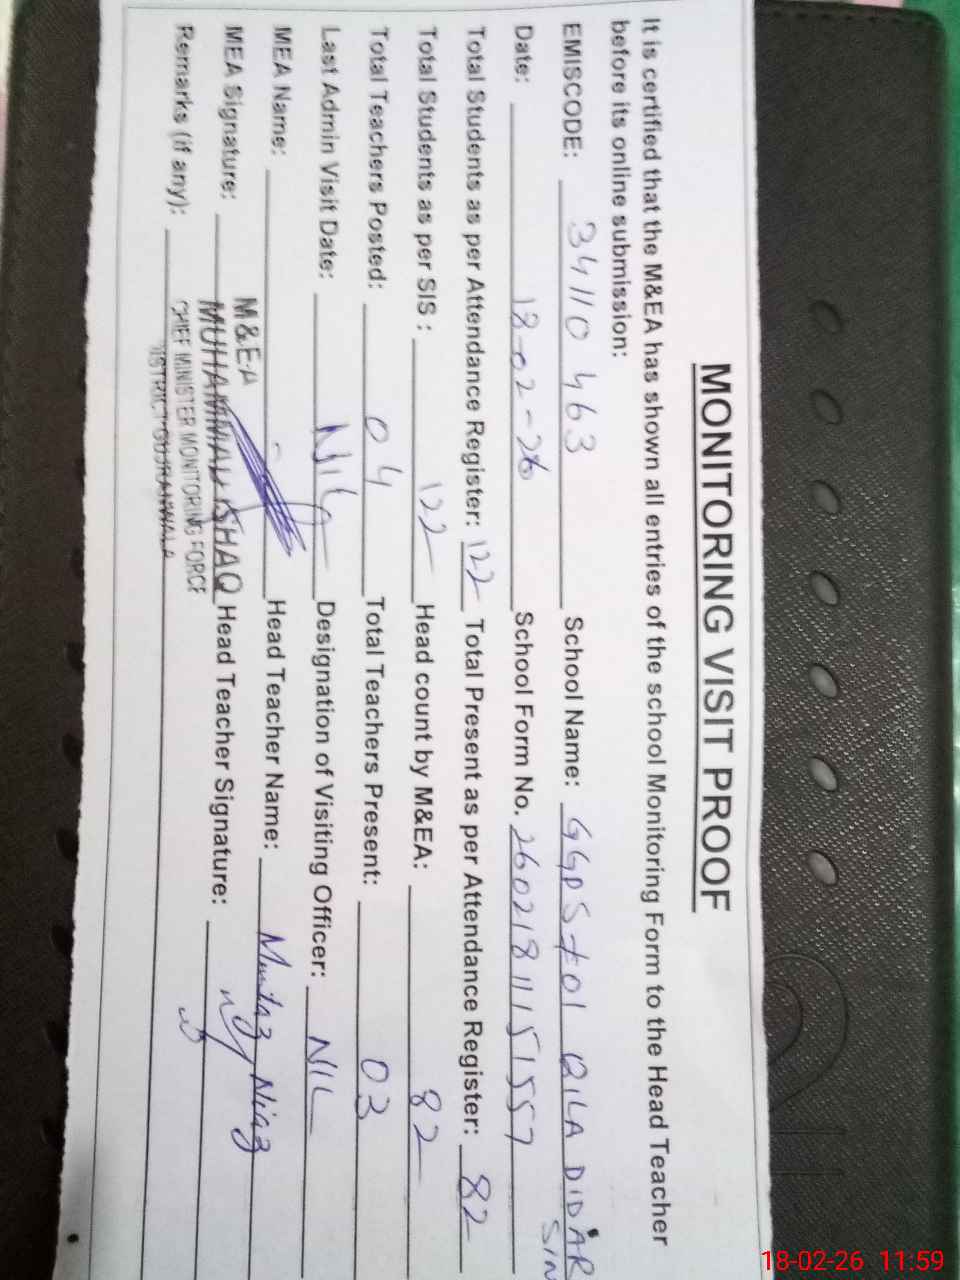 MONITORING VISIT PROOF
It is certified that the M&EA has shown all entries of the school Monitoring Form to the Head Teacher
before its online submission:
EMISCODE: 34110463 School Name: GGPS Kot QILA DIDAR
SIN
Date: 18-02-26 School Form No. 26021811151557
Total Students as per Attendance Register: 122 Total Present as per Attendance Register: 82
Total Students as per SIS : 122 Head count by M&EA: 82
Total Teachers Posted: 04 Total Teachers Present: 03
Last Admin Visit Date: NIL Designation of Visiting Officer: NIL
MEA Name: Head Teacher Name: Mumtaz Niaz
M&EA
MEA Signature: MUHAMMAD ISHAQ Head Teacher Signature:
CHIEF MINISTER MONITORING FORCE
Remarks (if any): DISTRICT GUJRANWALA
18-02-26 11:59